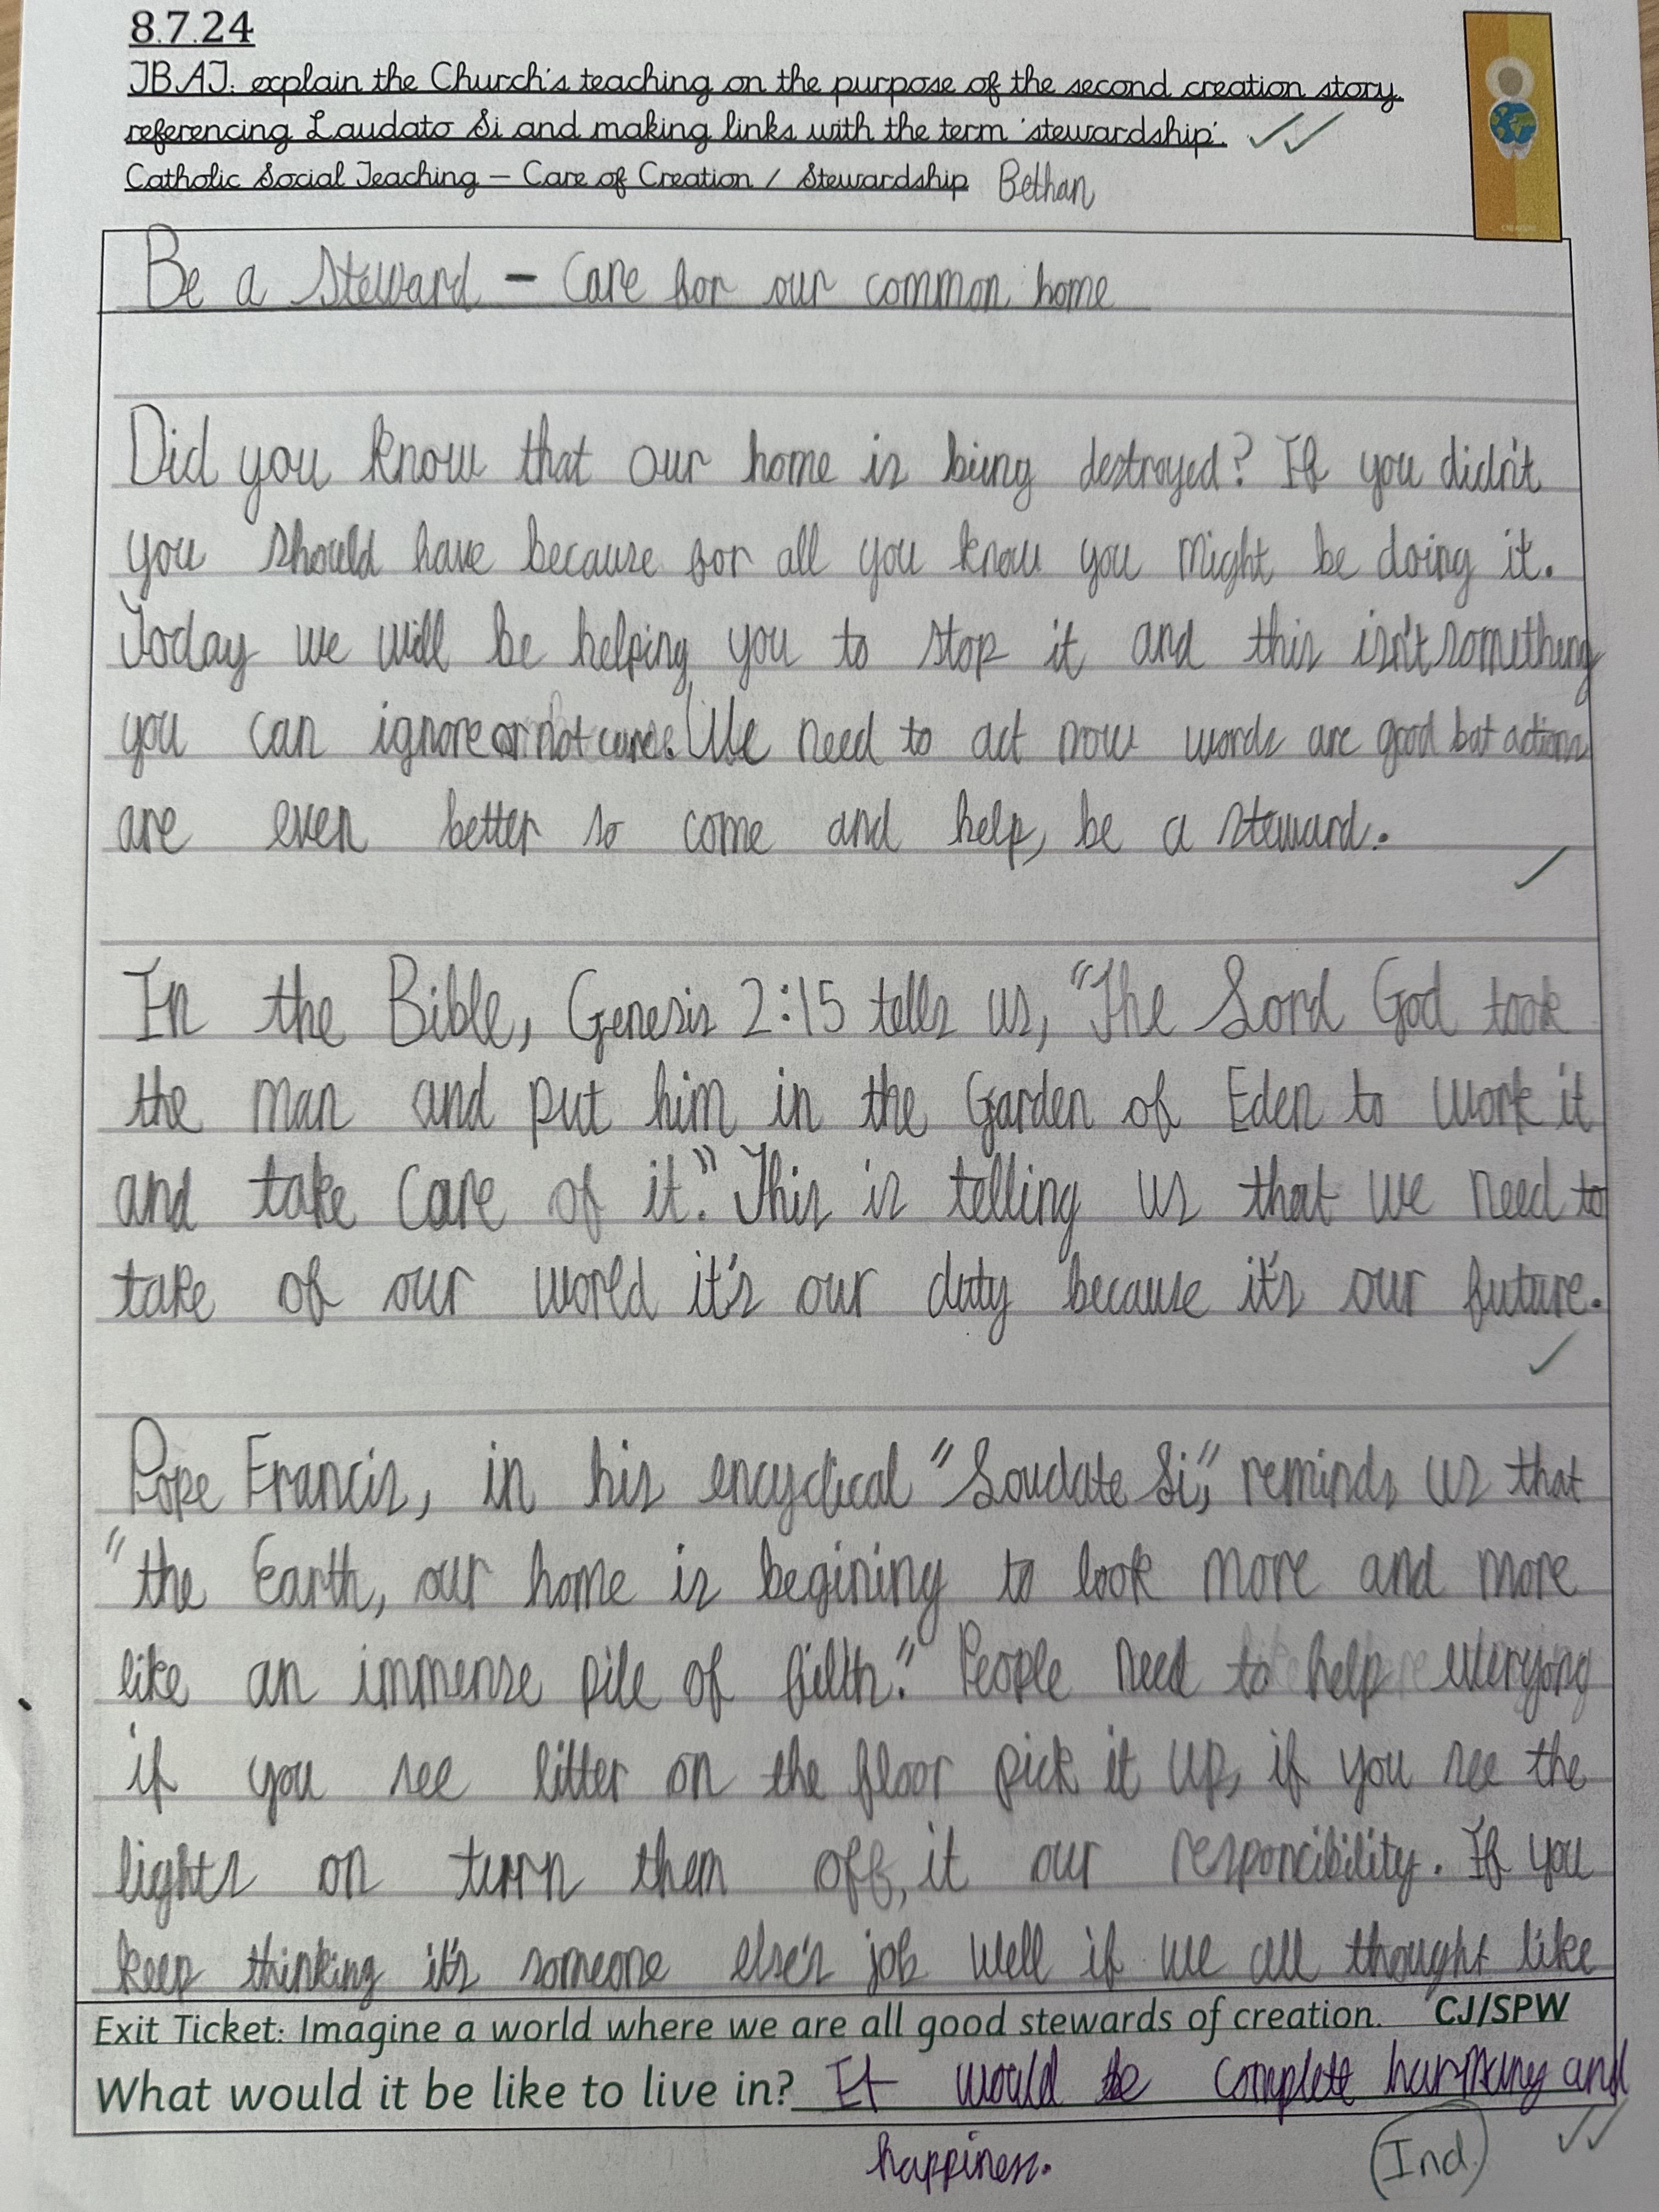 8.7.24
TBAT: explain the Church's teaching on the purpose of the second creation story,
referencing Laudato Si and making links with the term 'stewardship'.
Catholic Social Teaching – Care of Creation / Stewardship Bethan
Be a Steward - Care for our common home
Did you know that our home is being destroyed? If you didn't
you should have because for all you know you might be doing it.
Today we will be helping you to stop it and this isn't something
you can ignore or not care. We need to act now words are good but actions
are even better so come and help, be a steward.
In the Bible, Genesis 2:15 tells us, "The Lord God took
the man and put him in the Garden of Eden to work it
and take care of it." This is telling us that we need to
take of our world it's our duty because it's our future.
Pope Francis, in his encyclical "Loudate Si," reminds us that
"the Earth, our home is begining to look more and more
like an immense pile of filth." People need to help
if you see litter on the floor pick it up, if you see the
lights on turn them off, it our responcibility. If you
keep thinking it's someone else's job well if we all thought like
Exit Ticket: Imagine a world where we are all good stewards of creation. CJ/SPW
What would it be like to live in? It would be complete harmony and
happiness.
Ind.